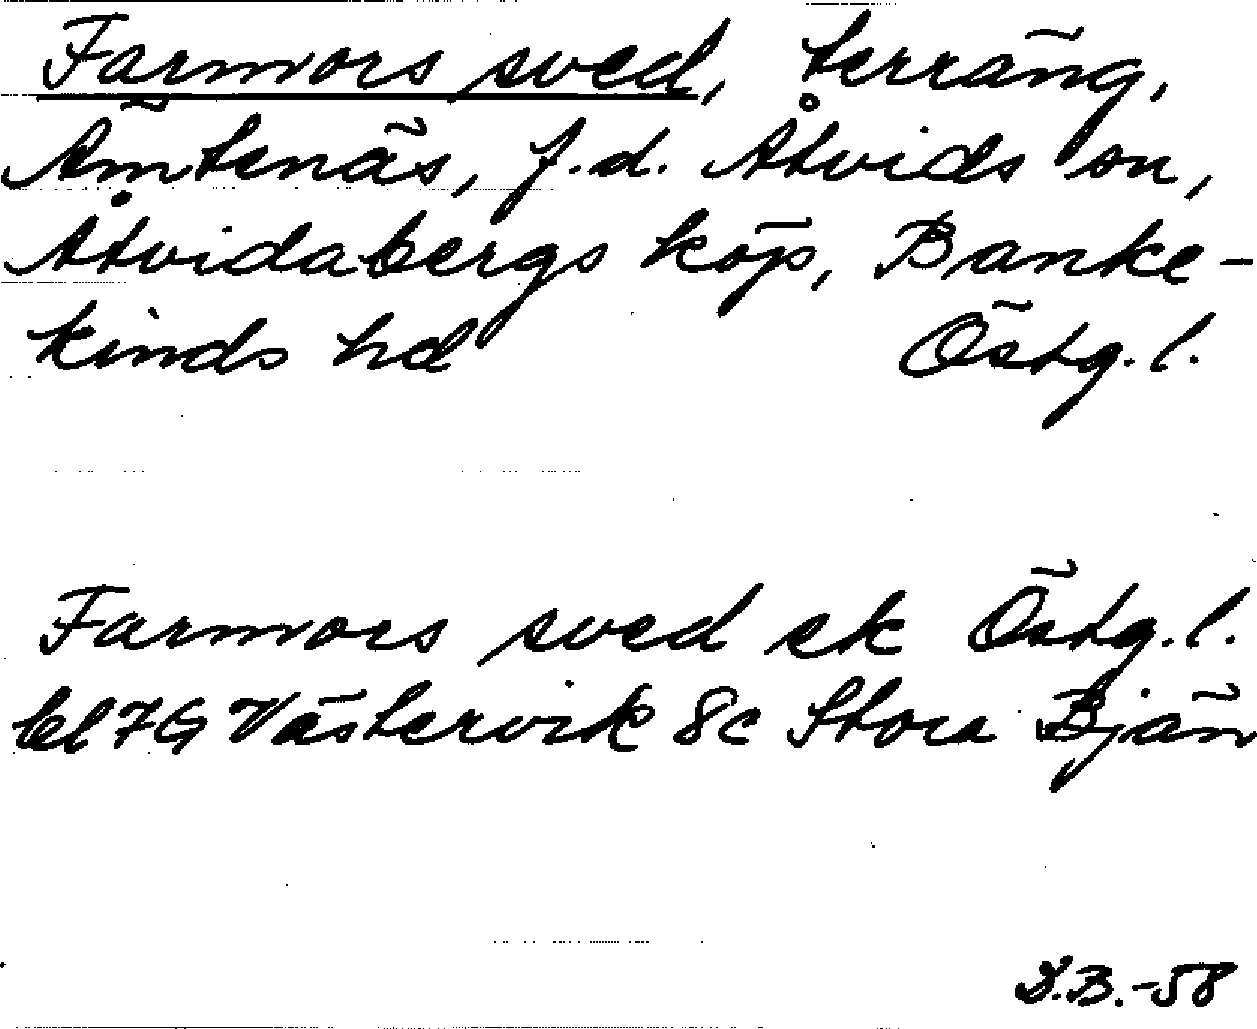 Farmors sved, terräng,
Ämtenäs, f.d. Åtvids sn,
Åtvidabergs köp, Banke-
kinds hd Östg.l.
Farmors sved ek Östg.l.
bl 7G Västervik 8c Stora Bjän
S.B.-58